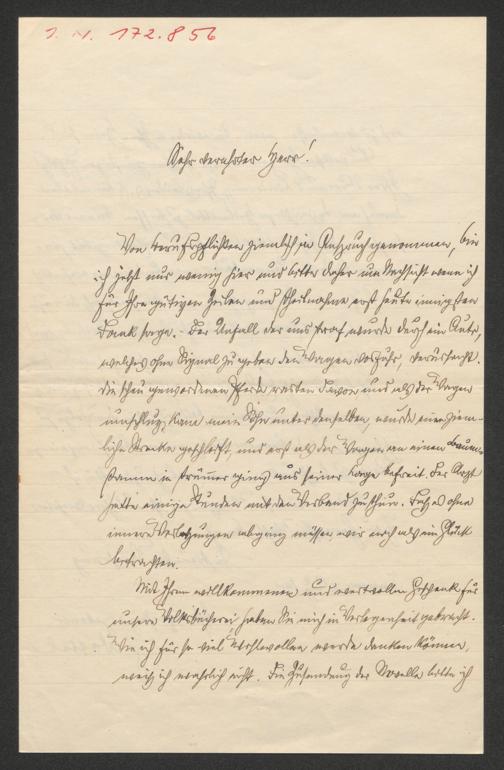 J. N. 172.856
Sehr verehrter Herr!
Von Berufspflichten ziemlich in Anspruch genommen, bin
ich jetzt nur wenig hier und bitte daher um Nachsicht wenn ich
für Ihre gütigen Zeilen und Theilnahme erst heute innigsten
Dank sage. - Der Unfall der uns traf wurde durch ein Auto,
welches ohne Signal zu geben den Wagen vorfuhr, verursacht.
Die scheu gewordenen Pferde rasten davon und als der Wagen
umschlug, kam mein Sohn unter denselben, wurde eine ziem-
liche Strecke geschleift, und erst als der Wagen an einem Baum-
stamme in Trümmer ging aus seiner Lage befreit. Der Arzt
hatte einige Stunden mit dem Verband zu thun. Daß es ohne
innere Verletzungen abging müssen wir noch als ein Glück
betrachten.
Mit Ihrem willkommenen und wertvollen Geschenk für
unsere Volksbücherei, haben Sie mich in Verlegenheit gebracht.
Wie ich für so viel Wohlwollen werde danken können,
weiß ich wahrlich nicht. Die Zusendung der Novelle bitte ich